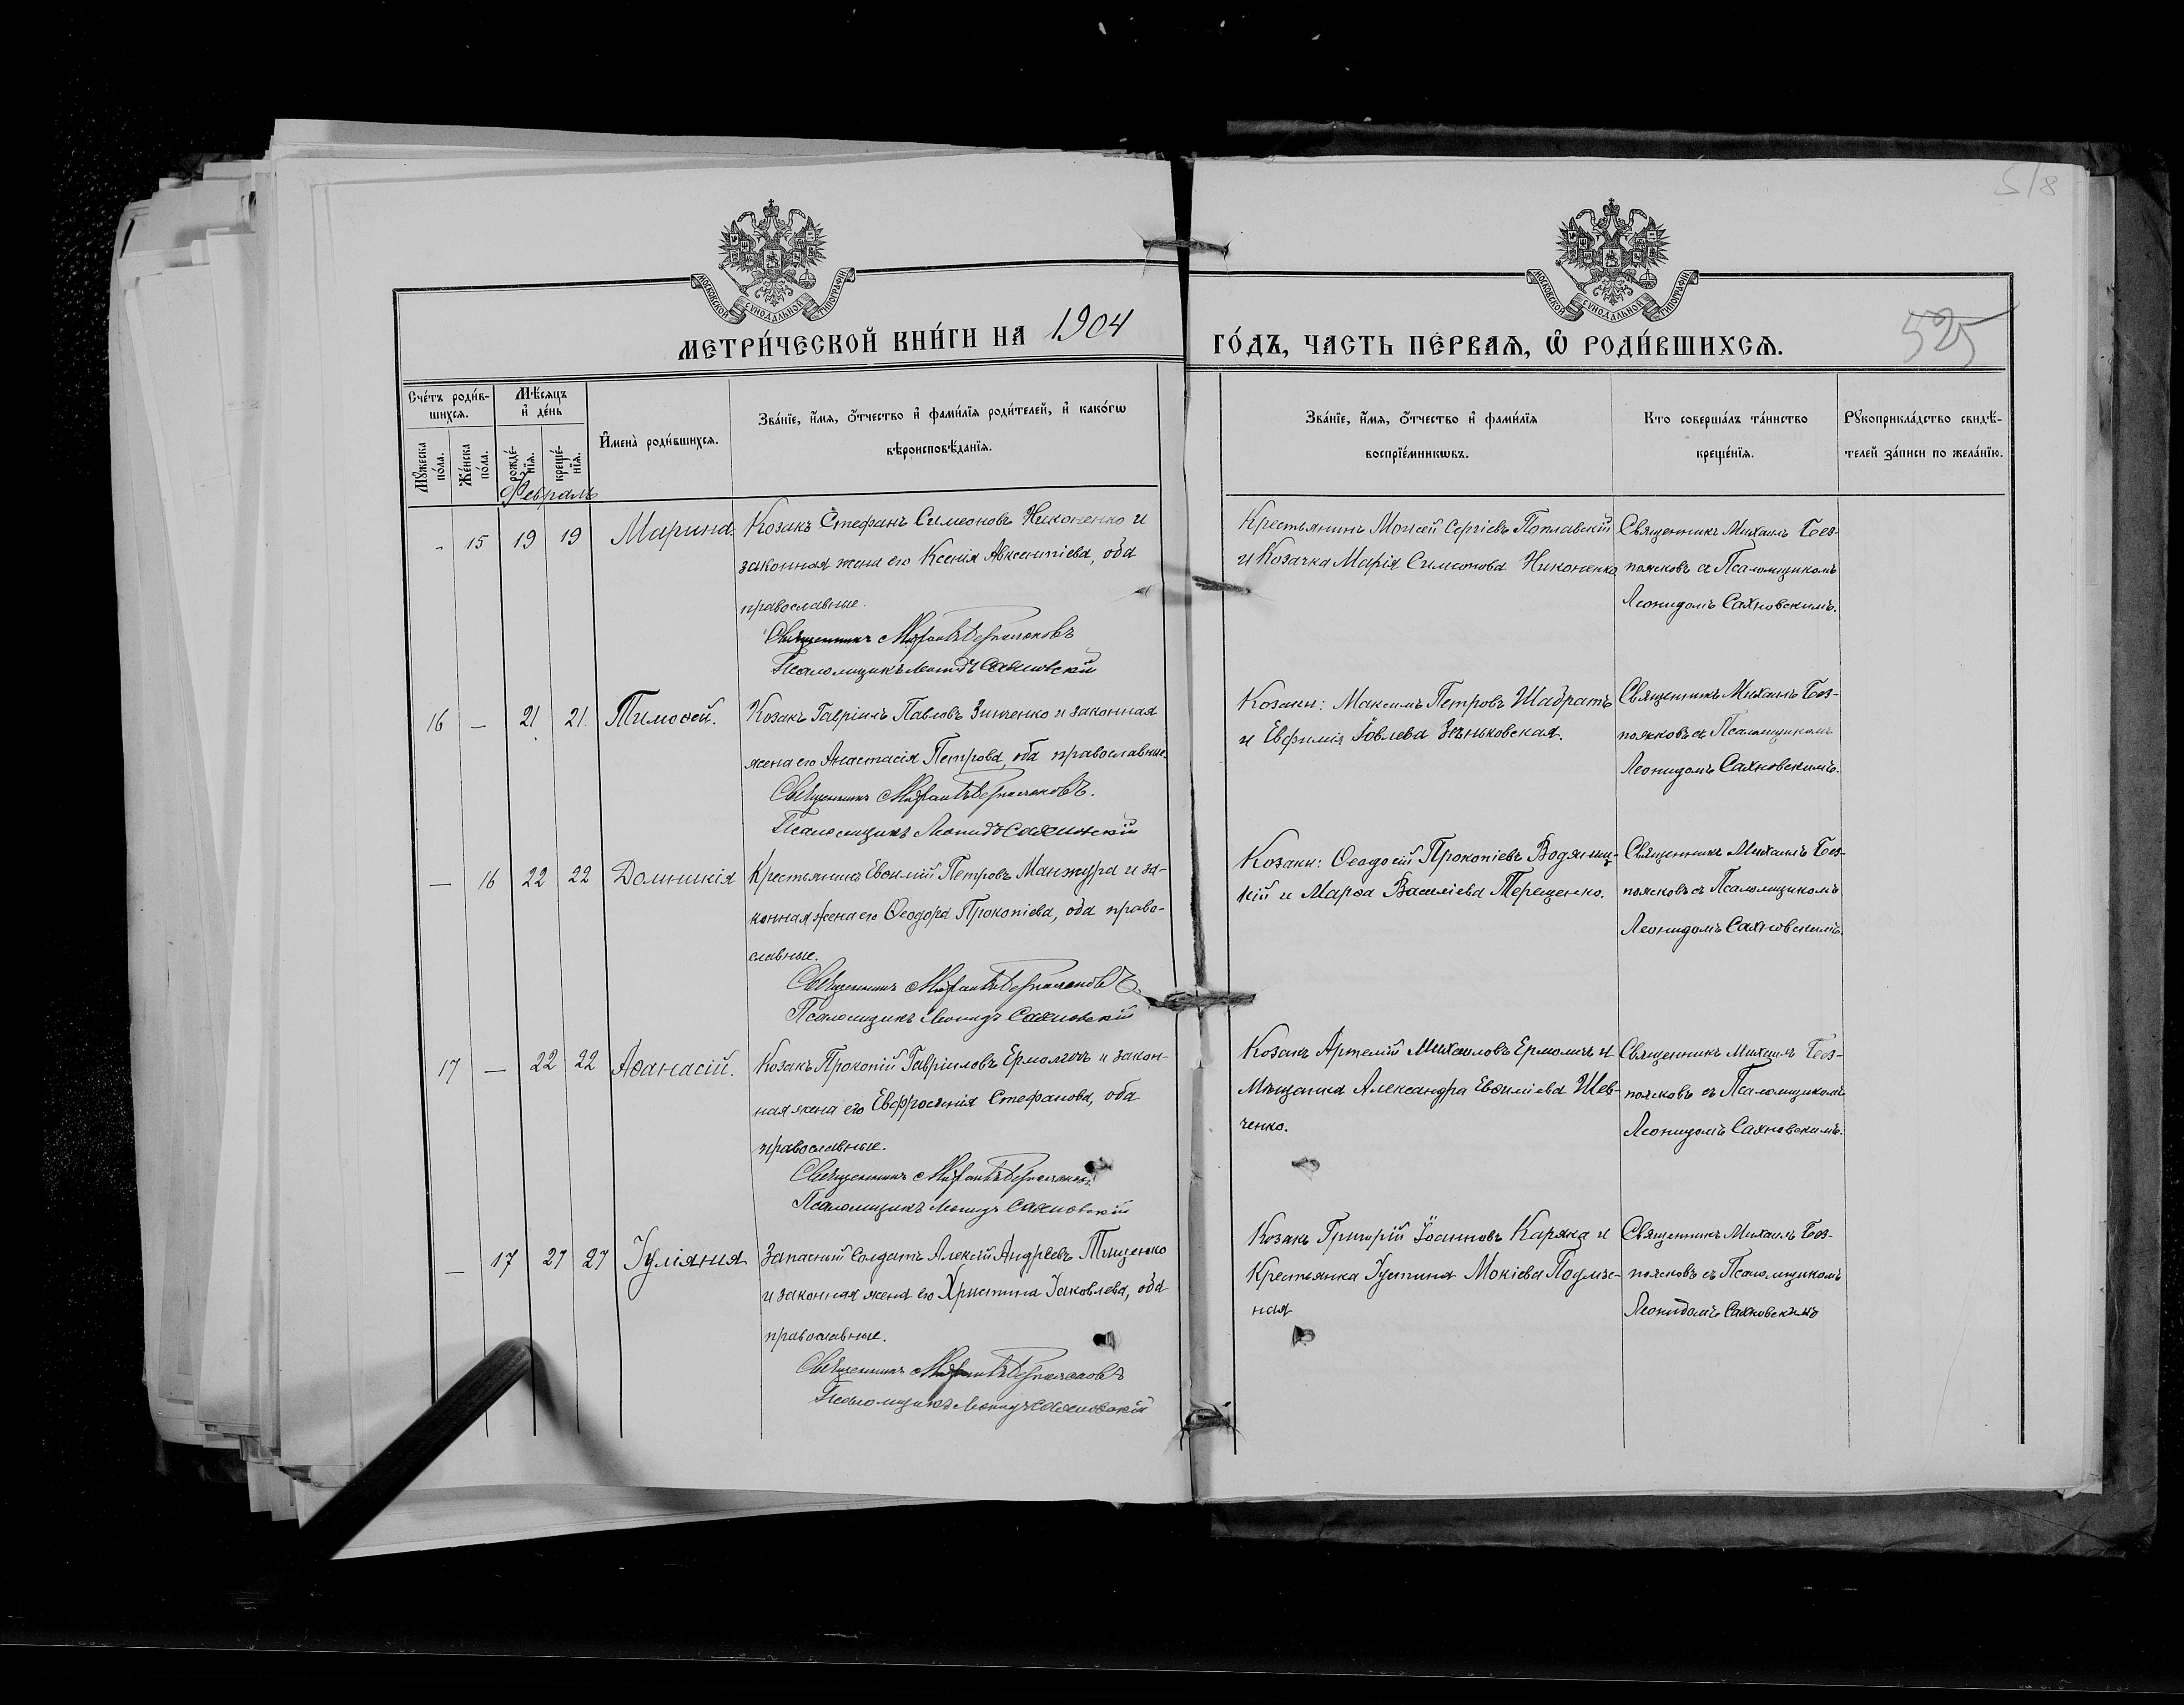 518
МОСКОВСКОЙ СѴНОДАЛЬНОЙ ТИПОГРАФІИ
МОСКОВСКОЙ СѴНОДАЛЬНОЙ ТИПОГРАФІИ
МЕТРИ́ЧЕСКОЙ КНИ́ГИ НА 1904
ГО́ДЪ, ЧАСТЬ ПЕ́РВАѦ, Ѽ РОДИ́ВШИХСѦ.
525
Сче́тъ роди́в-
шихсѧ.
Мꙋ́жеска по́ла.
Же́нска по́ла.
Мѣ́сѧцъ
и҆ де́нь
рожде́-
нїѧ.
креще́-
нїѧ.
И҆мена̀ роди́вшихсѧ.
Зва́нїе, и҆́мѧ, ѻ҆́тчество и҆ фами́лїѧ роди́телей, и҆ како́гѡ
вѣроисповѣ́данїѧ.
Зва́нїе, и҆́мѧ, ѻ҆́тчество и҆ фами́лїѧ
воспрїе́мникѡвъ.
Кто соверша́лъ та́инство
креще́нїѧ.
Рꙋкоприкла́дство свидѣ́-
телей за́писи по жела́нїю.
Февраль
- 15 19 19 Марина. Козакъ Стефанъ Симеоновъ Никоненко и
законная жена его Ксенія Авксентіева, оба
православные.
Священникъ Михаилъ Безпоясковъ
Псаломщикъ Леонидъ Сахновскій
Крестьянинъ Моисей Сергіевъ Поплавскій
и Козачка Марія Симеонова Никоненко
Священникъ Михаилъ Без-
поясковъ съ Псаломщикомъ
Леонидомъ Сахновскимъ.
16 — 21 21. Тимоѳей. Козакъ Гавріилъ Павловъ Зинченко и законная
жена его Анастасія Петрова, оба православные.
Священникъ Михаилъ Безпоясковъ.
Псаломщикъ Леонидъ Сахновскій
Козаки: Максимъ Петровъ Шабратъ
и Евфимія Іовлева Зѣньковская.
Священникъ Михаилъ Без-
поясковъ съ Псаломщикомъ
Леонидомъ Сахновскимъ.
— 16 22 22 Домникія Крестьянинъ Евѳимій Петровъ Манжура и за-
конная жена его Ѳеодора Прокопіева, оба право-
славные.
Священникъ Михаилъ Безпоясковъ.
Псаломщикъ Леонидъ Сахновскій
Козаки: Ѳеодосій Прокопіевъ Водяниц-
кій и Марѳа Василіева Терещенко.
Священникъ Михаилъ Без-
поясковъ съ Псаломщикомъ
Леонидомъ Сахновскимъ.
17 — 22 22 Аѳанасій. Козакъ Прокопій Гавріиловъ Ермоличъ и закон-
ная жена его Евфросинія Стефанова, оба
православные.
Священникъ Михаилъ Безпоясковъ
Псаломщикъ Леонидъ Сахновскій
Козакъ Артемій Михаиловъ Ермоличъ и
Мѣщанка Александра Евѳиміева Шев-
ченко.
Священникъ Михаилъ Без-
поясковъ съ Псаломщикомъ
Леонидомъ Сахновскимъ.
— 17 27 27 Іуліанія Запасный Солдатъ Алексій Андреевъ Тищенко
и законная жена его Христина Іаковлева, оба
православные.
Священникъ Михаилъ Безпоясковъ
Псаломщикъ Леонидъ Сахновскій
Козакъ Григорій Іоанновъ Каряка и
Крестьянка Іустина Мокіева Подлѣс-
ная
Священникъ Михаилъ Без-
поясковъ съ Псаломщикомъ
Леонидомъ Сахновскимъ